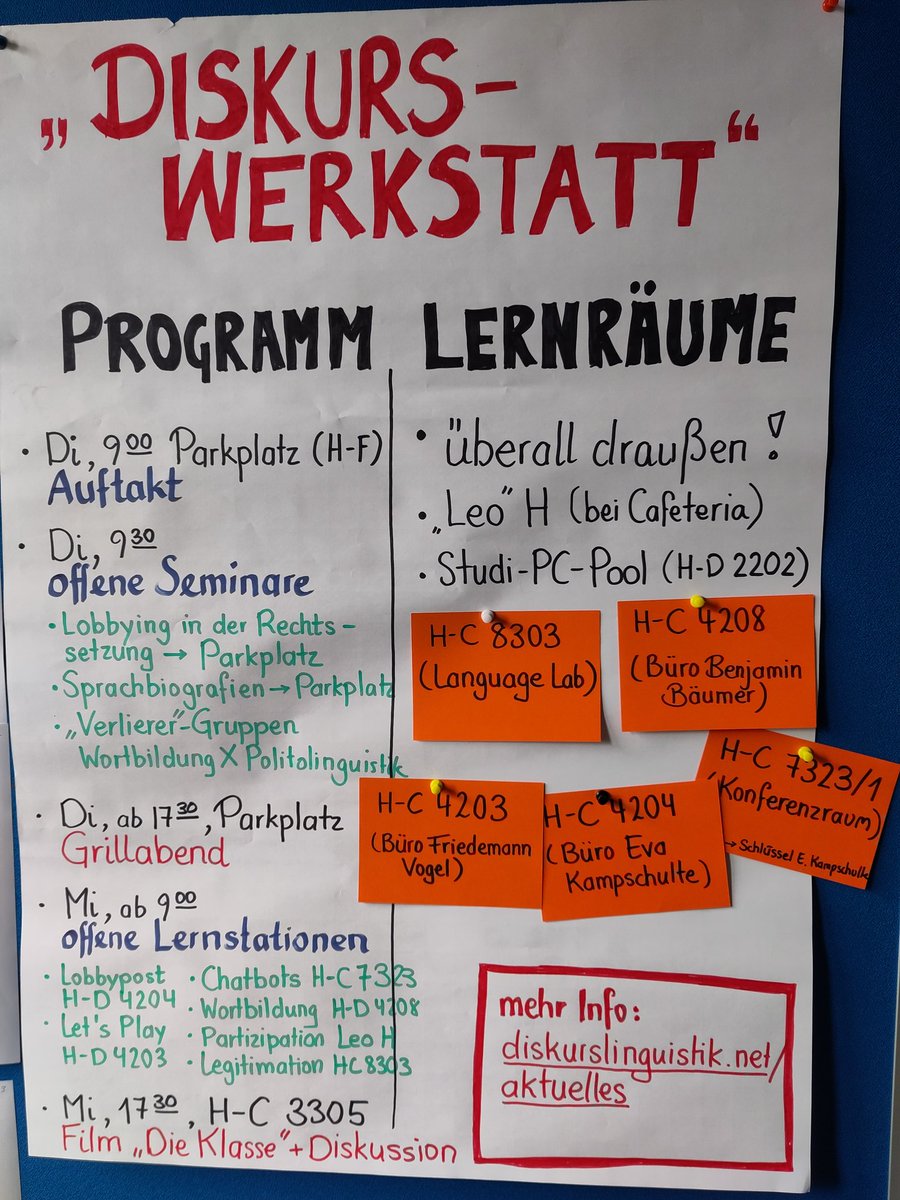 „DISKURS-
WERKSTATT“
PROGRAMM
• Di, 9⁰⁰ Parkplatz (H-F)
Auftakt
• Di, 9³⁰
offene Seminare
• Lobbying in der Rechts-
setzung → Parkplatz
• Sprachbiografien → Parkplatz
• „Verlierer“-Gruppen
Wortbildung X Politolinguistik
• Di, ab 17³⁰, Parkplatz
Grillabend
• Mi, ab 9⁰⁰
offene Lernstationen
• Lobbypost
H-D 4204
• Let's Play
H-D 4203
• Chatbots H-C 7323
• Wortbildung H-D 4208
• Partizipation Leo H
• Legitimation HC 8303
• Mi, 17³⁰, H-C 3305
Film „Die Klasse“ + Diskussion
LERNRÄUME
• überall draußen!
• „Leo“ H (bei Cafeteria)
• Studi-PC-Pool (H-D 2202)
H-C 8303
(Language Lab)
H-C 4208
(Büro Benjamin
Bäumer)
H-C 7323/1
(Konferenzraum)
→ Schlüssel E. Kampschulte
H-C 4203
(Büro Friedemann
Vogel)
H-C 4204
(Büro Eva
Kampschulte)
mehr Info:
diskurslinguistik.net/
aktuelles